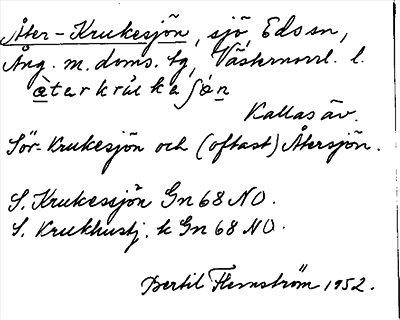 Åter-Krukesjön, sjö, Eds sn,
Ång. m. doms. tg, Västernorrl. l.
Kallas äv.
Sör-Krukesjön och (oftast) Återsjön.
S. Krukessjön Gn 68 NO.
S. Krukhustj. k Gn 68 NO.
Bertil Flemström 1952.